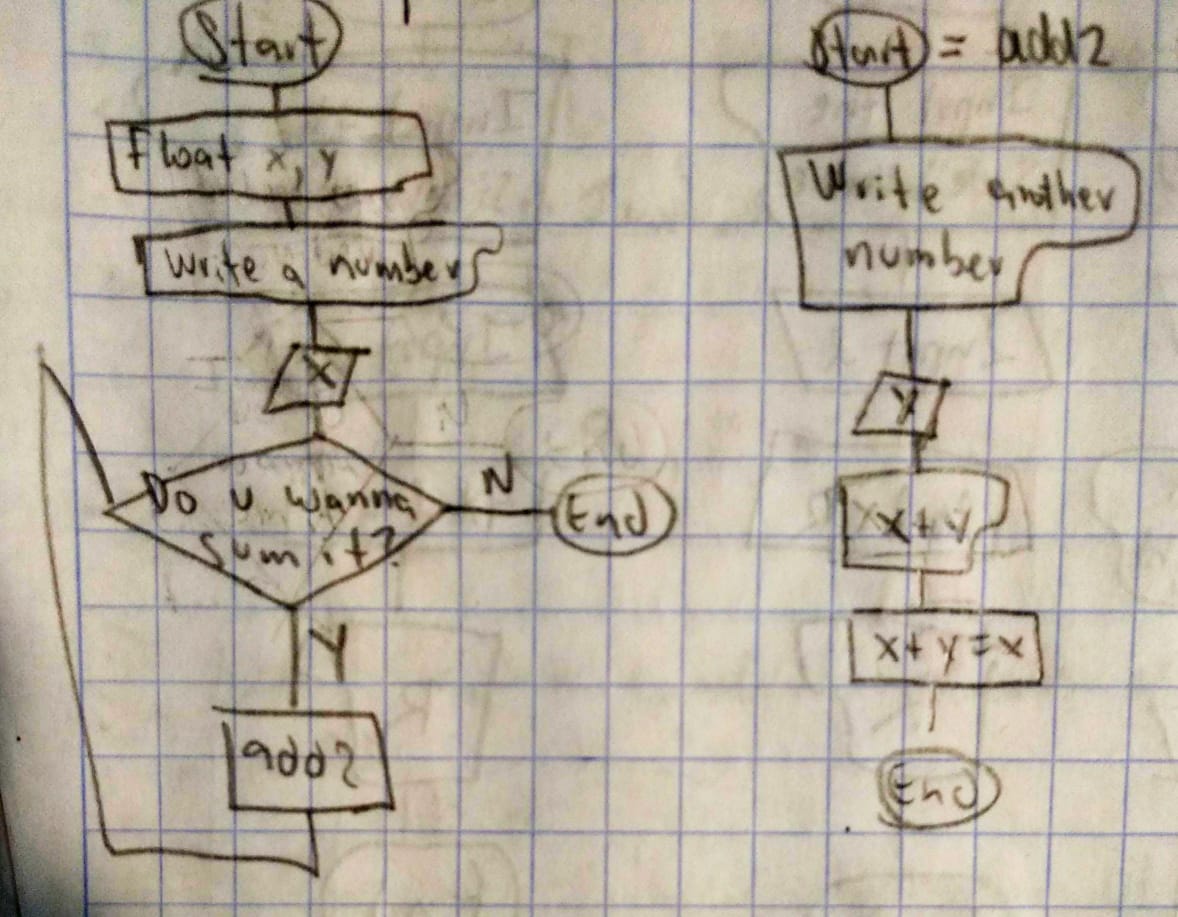 Start
float x, y
Write a number
X
Do u wanna
sum it?
N
End
Y
add2
Start = add2
Write another
number
y
x+y
x+y=x
End